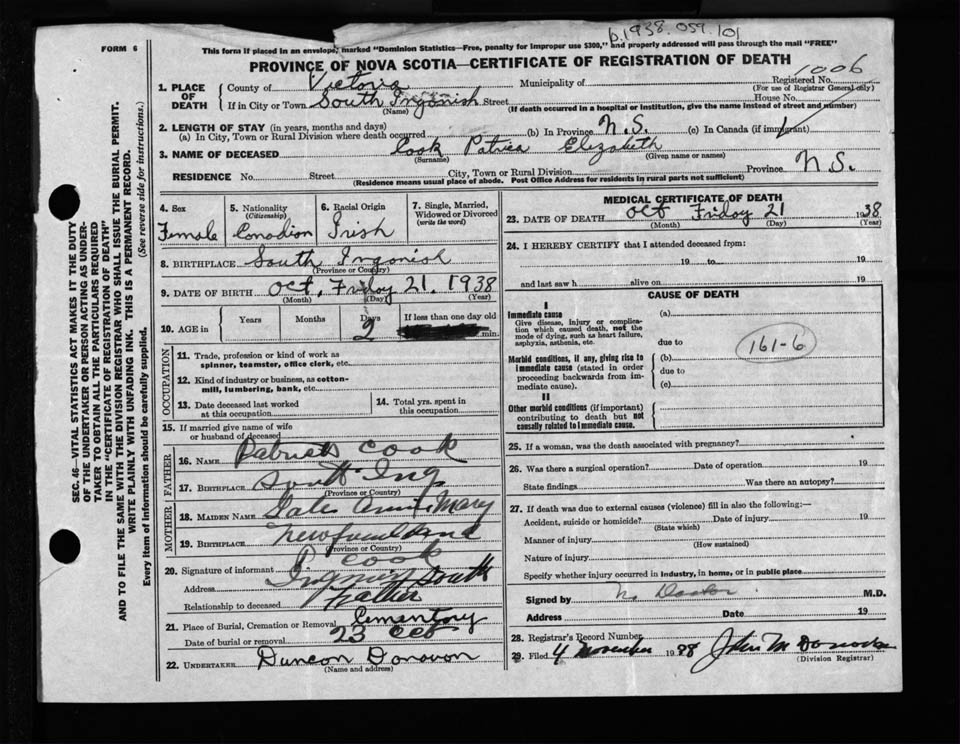 b.1938.059.101
FORM 6
This form if placed in an envelope, marked "Dominion Statistics—Free, penalty for improper use $300," and properly addressed will pass through the mail "FREE"
PROVINCE OF NOVA SCOTIA—CERTIFICATE OF REGISTRATION OF DEATH
1. PLACE OF DEATH
County of Victoria Municipality of Registered No. 1006
(For use of Registrar General only)
If in City or Town South Ingonish Street House No.
(Name) (If death occurred in a hospital or institution, give the name instead of street and number)
2. LENGTH OF STAY (in years, months and days)
(a) In City, Town or Rural Division where death occurred (b) In Province N.S. (c) In Canada (if immigrant)
3. NAME OF DECEASED Cook Patrica Elizabeth
(Surname) (Given name or names)
RESIDENCE No. Street City, Town or Rural Division Province N.S.
(Residence means usual place of abode. Post Office Address for residents in rural parts not sufficient)
4. Sex Female
5. Nationality (Citizenship) Canadian
6. Racial Origin Irish
7. Single, Married, Widowed or Divorced (write the word)
8. BIRTHPLACE South Ingonish
(Province or Country)
9. DATE OF BIRTH Oct. Friday 21. 1938
(Month) (Day) (Year)
10. AGE in Years Months Days 2 If less than one day old
min.
OCCUPATION
11. Trade, profession or kind of work as spinner, teamster, office clerk, etc.
12. Kind of industry or business, as cotton-mill, lumbering, bank, etc.
13. Date deceased last worked at this occupation
14. Total yrs. spent in this occupation
15. If married give name of wife or husband of deceased
FATHER
16. NAME Patrick Cook
17. BIRTHPLACE South Ing
(Province or Country)
MOTHER
18. MAIDEN NAME Annie Mary
19. BIRTHPLACE Newfoundland
(Province or Country)
20. Signature of informant P Cook
Address Ingonish South
Relationship to deceased Father
21. Place of Burial, Cremation or Removal Cementory
Date of burial or removal 23 Oct
22. UNDERTAKER Duncan Donovan
(Name and address)
MEDICAL CERTIFICATE OF DEATH
23. DATE OF DEATH Oct Friday 21 1938
(Month) (Day) (Year)
24. I HEREBY CERTIFY that I attended deceased from:
19 to 19
and last saw h alive on 19
CAUSE OF DEATH
I
Immediate cause (a)
Give disease, injury or complication which caused death, not the mode of dying, such as heart failure, asphyxia, asthenia, etc.
due to
Morbid conditions, if any, giving rise to immediate cause (stated in order proceeding backwards from immediate cause).
(b) 161-6
due to
(c)
II
Other morbid conditions (if important) contributing to death but not causally related to immediate cause.
25. If a woman, was the death associated with pregnancy?
26. Was there a surgical operation? Date of operation 19
State findings Was there an autopsy?
27. If death was due to external causes (violence) fill in also the following:—
Accident, suicide or homicide? Date of injury 19
(State which)
Manner of injury
(How sustained)
Nature of injury
Specify whether injury occurred in industry, in home, or in public place
Signed by No Doctor M.D.
Address Date 19
28. Registrar's Record Number
29. Filed 4 November 1938 John M Donovan
(Division Registrar)
SEC. 46—VITAL STATISTICS ACT MAKES IT THE DUTY
OF THE UNDERTAKER OR PERSON ACTING AS UNDER-
TAKER TO OBTAIN ALL THE PARTICULARS REQUIRED
IN THE "CERTIFICATE OF REGISTRATION OF DEATH"
AND TO FILE THE SAME WITH THE DIVISION REGISTRAR WHO SHALL ISSUE THE BURIAL PERMIT.
WRITE PLAINLY WITH UNFADING INK. THIS IS A PERMANENT RECORD.
Every item of information should be carefully supplied. (See reverse side for instructions.)